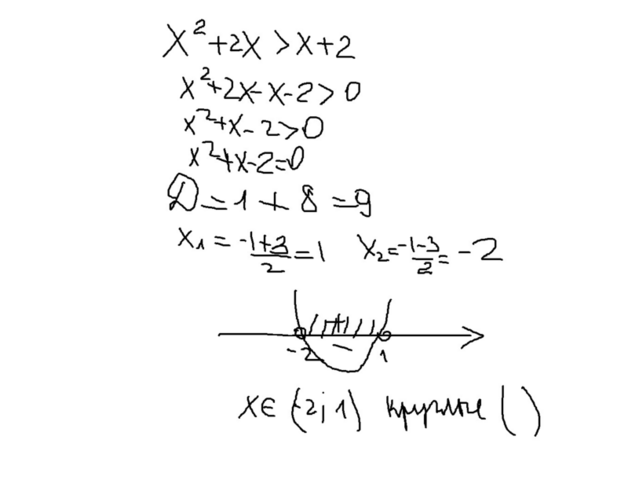 x²+2x>x+2
x²+2x-x-2>0
x²+x-2>0
x²+x-2=0
D=1+8=9
x₁=-1+3/2=1 x₂=-1-3/2=-2
-2 - 1
x∈(-2;1) круглые ()